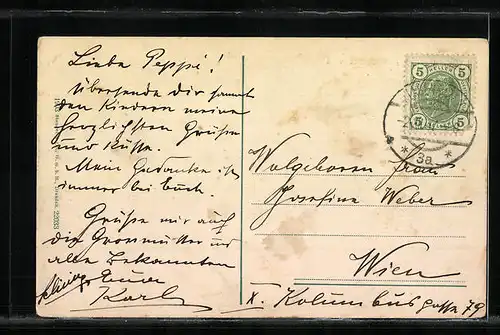 Liebe Peppi!
Übersende dir sammt
den Kindern meine
herzlichsten Grüße
und Küsse.
Mein Gedanke ist
immer bei Euch.
Grüße mir auch
die Grossmutter und
alle Bekannten
Euer
Karl
5 5
5 5
* 3a *
Wolgeboren Frau
Josefine Weber
Wien
X. Kolumbusgasse 79